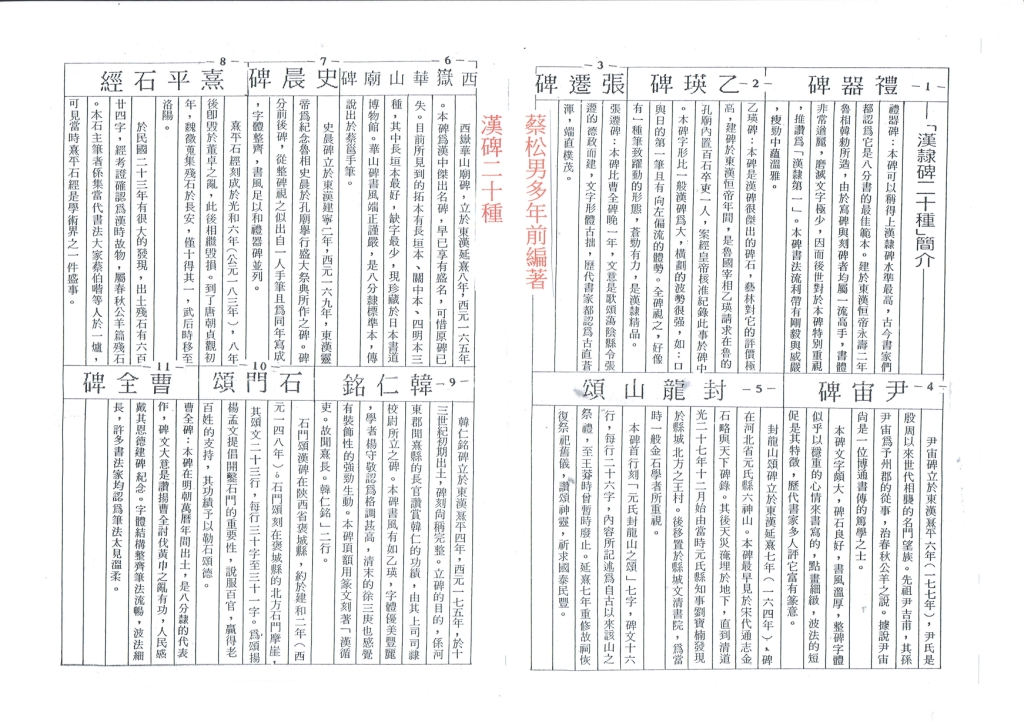 「漢隸碑二十種」簡介
1
禮器碑
禮器碑：本碑可以稱得上漢隸碑水準最高，古今書家們
都認為它是八分書的最佳範本。建於東漢恒帝永壽二年
魯相韓勅所造，由於寫碑與刻碑者均屬一流高手，書體
非常遒麗，磨滅文字極少，因而後世對於本碑特別重視
，推讚為「漢隸第一」。本碑書法流利帶有剛毅與威嚴
，瘦勁中蘊溫雅。
2
乙瑛碑
乙瑛碑：本碑是漢碑很傑出的碑石，藝林對它的評價極
高，建碑於東漢恒帝年間，是魯國宰相乙瑛請求在魯的
孔廟內置百石卒吏一人，案經皇帝核准紀錄此事於碑中
。本碑字形比一般漢碑為大，橫劃的波勢很强，如：口
與日的第一筆且有向左偏流的體勢。全碑視之，好像
有一種筆致躍動的形態，蒼勁有力，是漢隸精品。
3
張遷碑
張遷碑：本碑比曹全碑晚一年，文意是歌頌蕩陰縣令張
遷的德政而建，文字形體古拙，歷代書家都認為古直蒼
渾，端直樸茂。
4
尹宙碑
尹宙碑立於東漢熹平六年（一七七年），尹氏是
殷周以來世代相襲的名門望族。先祖尹吉甫，其孫
尹宙為予州郡的從事，治春秋公羊之說。據說尹宙
尚是一位博通書傳的篤學之士。
本碑文字頗大，碑石良好，書風溫厚，整碑字體
似乎以穩重的心情來書寫的，點畫細緻，波法的短
促是其特徵，歷代書家多人評它富有篆意。
5
封龍山頌
封龍山頌碑立於東漢延熹七年（一六四年）。碑
在河北省元氏縣六神山。本碑最早見於宋代通志金
石略與天下碑錄。其後天災淹埋於地下，直到清道
光二十七年十二月始由當時元氏縣知事劉寶楠發現
於縣城北方之王村。後移置於縣城文清書院，為當
時一般金石學者所重視。
本碑首行刻「元氏封龍山之頌」七字，碑文十六
行，每行二十六字，內容所記述為自古以來該山之
祭禮，至王莽時曾暫時廢止。延熹七年重修故祠恢
復祭祀舊儀，讚頌神靈，祈求國泰民豐。
蔡松男多年前編著
漢碑二十種
6
西嶽華山廟碑
西嶽華山廟碑，立於東漢延熹八年，西元一六五年
。本碑為漢中傑出名碑，早已享有盛名，可惜原碑已
失。目前所見到的拓本有長垣本、關中本、四明本三
種，其中長垣本最好，缺字最少，現珍藏於日本書道
博物館。華山碑書風端正謹嚴，是八分隸標準本，傳
說出於蔡邕手筆。
7
史晨碑
史晨碑立於東漢建寧二年，西元一六九年，東漢靈
帝為紀念魯相史晨於孔廟舉行盛大祭典所作之碑。碑
分前後碑，從整碑視之似出自一人手筆且為同年寫成
，字體整齊，書風足以和禮器碑並列。
8
熹平石經
熹平石經刻成於光和六年（公元一八三年），八年
後卽毀於董卓之亂，此後相繼毀損。到了唐朝貞觀初
年，魏徵蒐集殘石於長安，僅十得其一，武后時移至
洛陽。
於民國二十三年有很大的發現，出土殘石有六百
廿四字，經考證確認為漢時故物，屬春秋公羊篇殘石
。本石主筆者係集當代書法大家蔡伯喈等人於一爐，
可見當時熹平石經是學術界之一件盛事。
9
韓仁銘
韓仁銘碑立於東漢熹平四年，西元一七五年，於十
三世紀初期出土，碑刻尚稱完整。立碑的目的，係河
東郡聞熹縣的長官讚賞韓仁的功績，由其上司司隸
校尉所立之碑。本碑書風有如乙瑛，字體優美豐麗
，學者楊守敬認為格調甚高，清末的徐三庚也感覺
有裝飾性的強勁生動。本碑頂額用篆文刻著「漢循
吏。故聞熹長。韓仁銘」二行。
10
石門頌
石門頌漢碑在陝西省褒城縣，約於建和二年（西
元一四八年）。石門頌刻在褒城縣的北方石門摩崖，
其頌文二十三行，每行三十字至三十一字。為頌揚
楊孟文提倡開鑿石門的重要性，說服百官，贏得老
百姓的支持，其功績予以勒石頌德。
11
曹全碑
曹全碑：本碑在明朝萬曆年間出土，是八分隸的代表
作，碑文大意是讚揚曹全討伐黃巾之亂有功，人民感
戴其恩德建碑紀念。字體結構整齊筆法流暢，波法細
長，許多書法家均認為筆法太見溫柔。